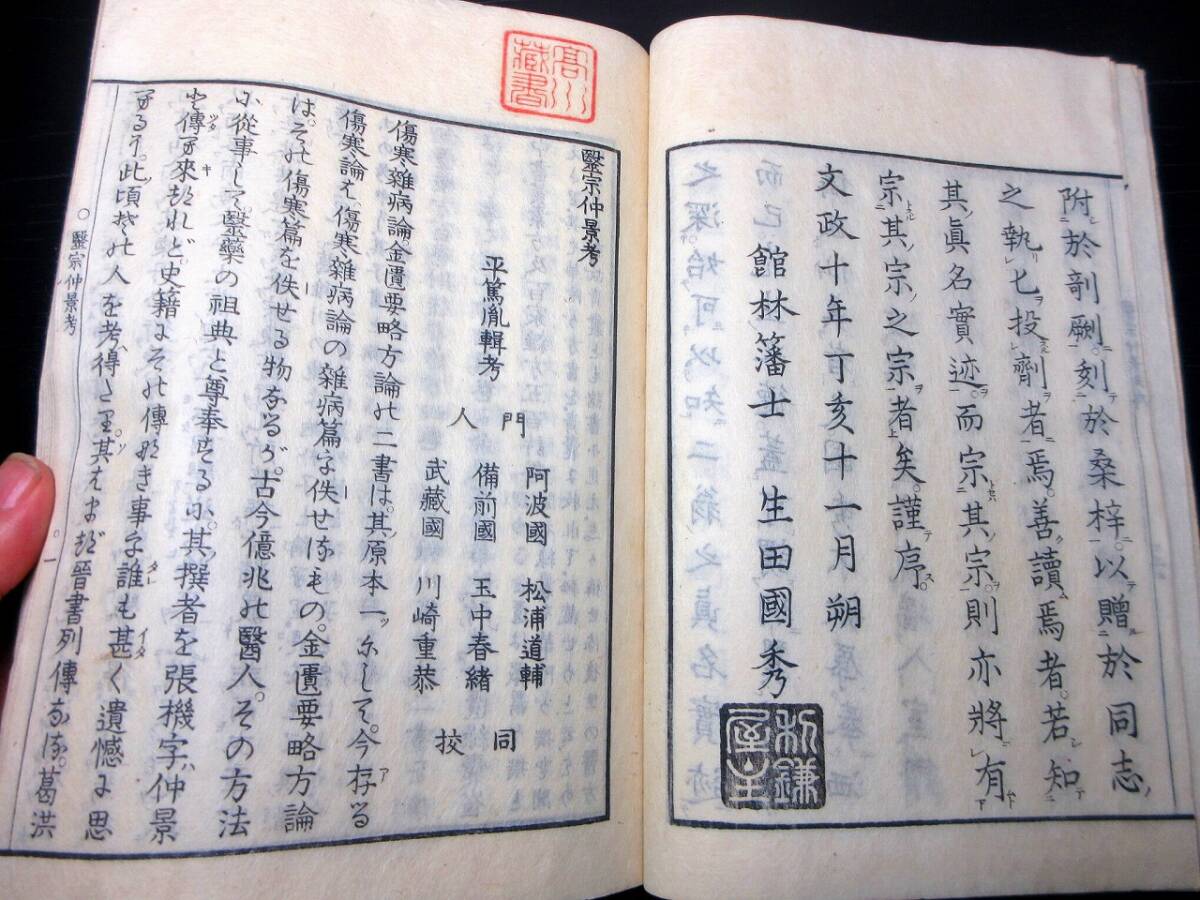 附於剞劂。刻於桑梓。以贈於同志
之執匕投劑者焉。善讀焉者。若知
其眞名實迹。而宗其宗。則亦將有
宗其宗之宗者矣。謹序。
文政十年丁亥十一月朔
館林藩士 生田國秀
利鎌屋主
高川藏書
醫宗仲景考
平篤胤輯考
門人
阿波國 松浦道輔
備前國 玉中春緒
武藏國 川崎重恭
同挍
傷寒雜病論。金匱要略方論の二書は。其原本一ツにして。今存る
傷寒論は。傷寒雜病論の雜病篇を佚せるもの。金匱要略方論
は。その傷寒篇を佚せる物なるが。古今億兆の醫人。その方法
に從事して。醫藥の祖典と尊奉するに。其撰者を張機字仲景
と傳へ來れど。史籍にその傳なき事を。誰も甚く遺憾に思
へるを。此頃その人を考得たり。其はまづ晉書列傳なる。葛洪
○醫宗仲景考 ○一